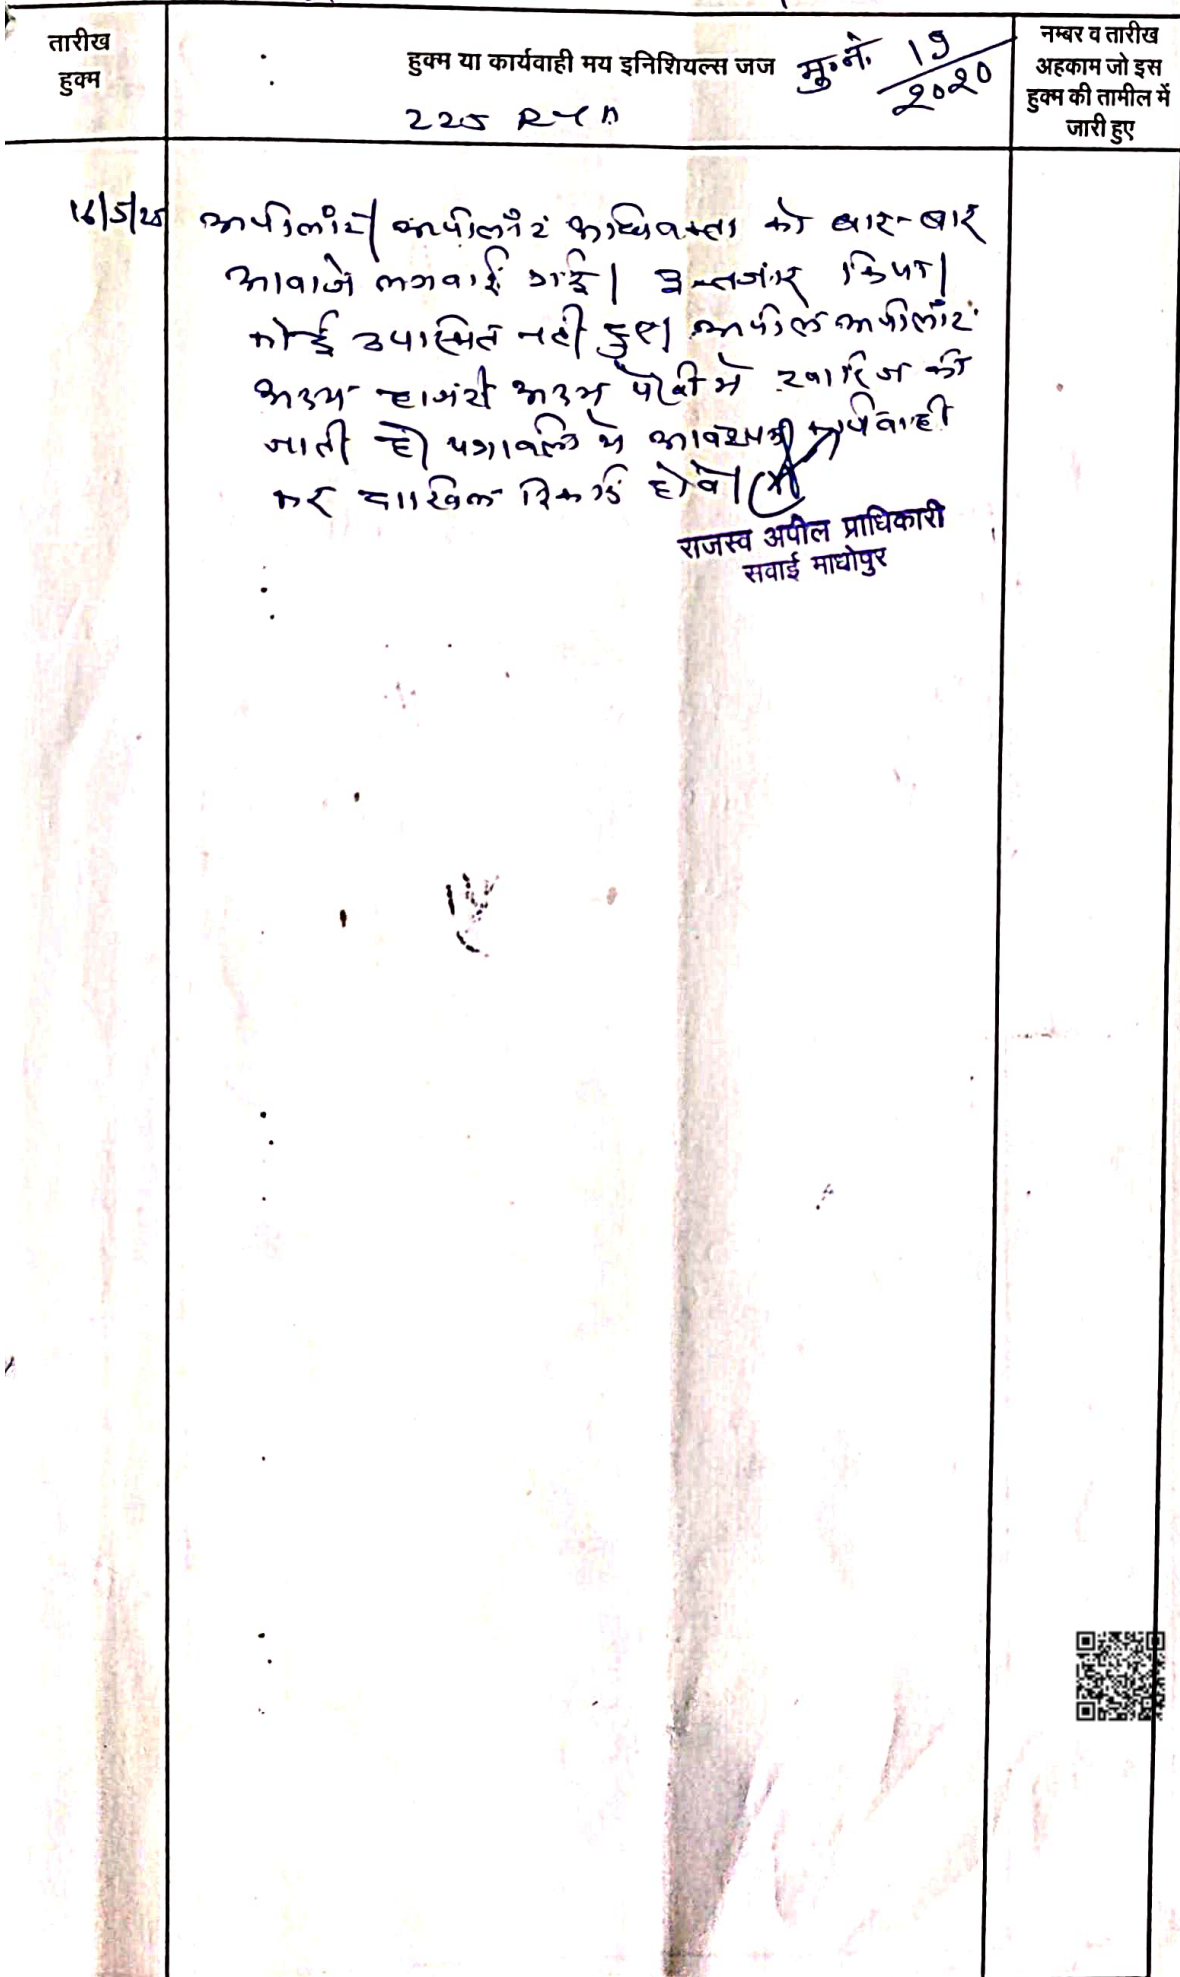 तारीख
हुक्म
हुक्म या कार्यवाही मय इनिशियल्स जज
मु.नं. 19/2020
225 RTA
नम्बर व तारीख
अहकाम जो इस
हुक्म की तामील में
जारी हुए
16/5/25
अपीलांट/अपीलांट अधिवक्ता को बार-बार
आवाजें लगवाई गई। इन्तजार किया।
कोई उपस्थित नहीं हुए। अपील अपीलांट
अदम हाजरी अदम पैरवी में खारिज की
जाती है। पत्रावलि में आवश्यक कार्यवाही
कर दाखिल रिकार्ड होवे।
राजस्व अपील प्राधिकारी
सवाई माधोपुर